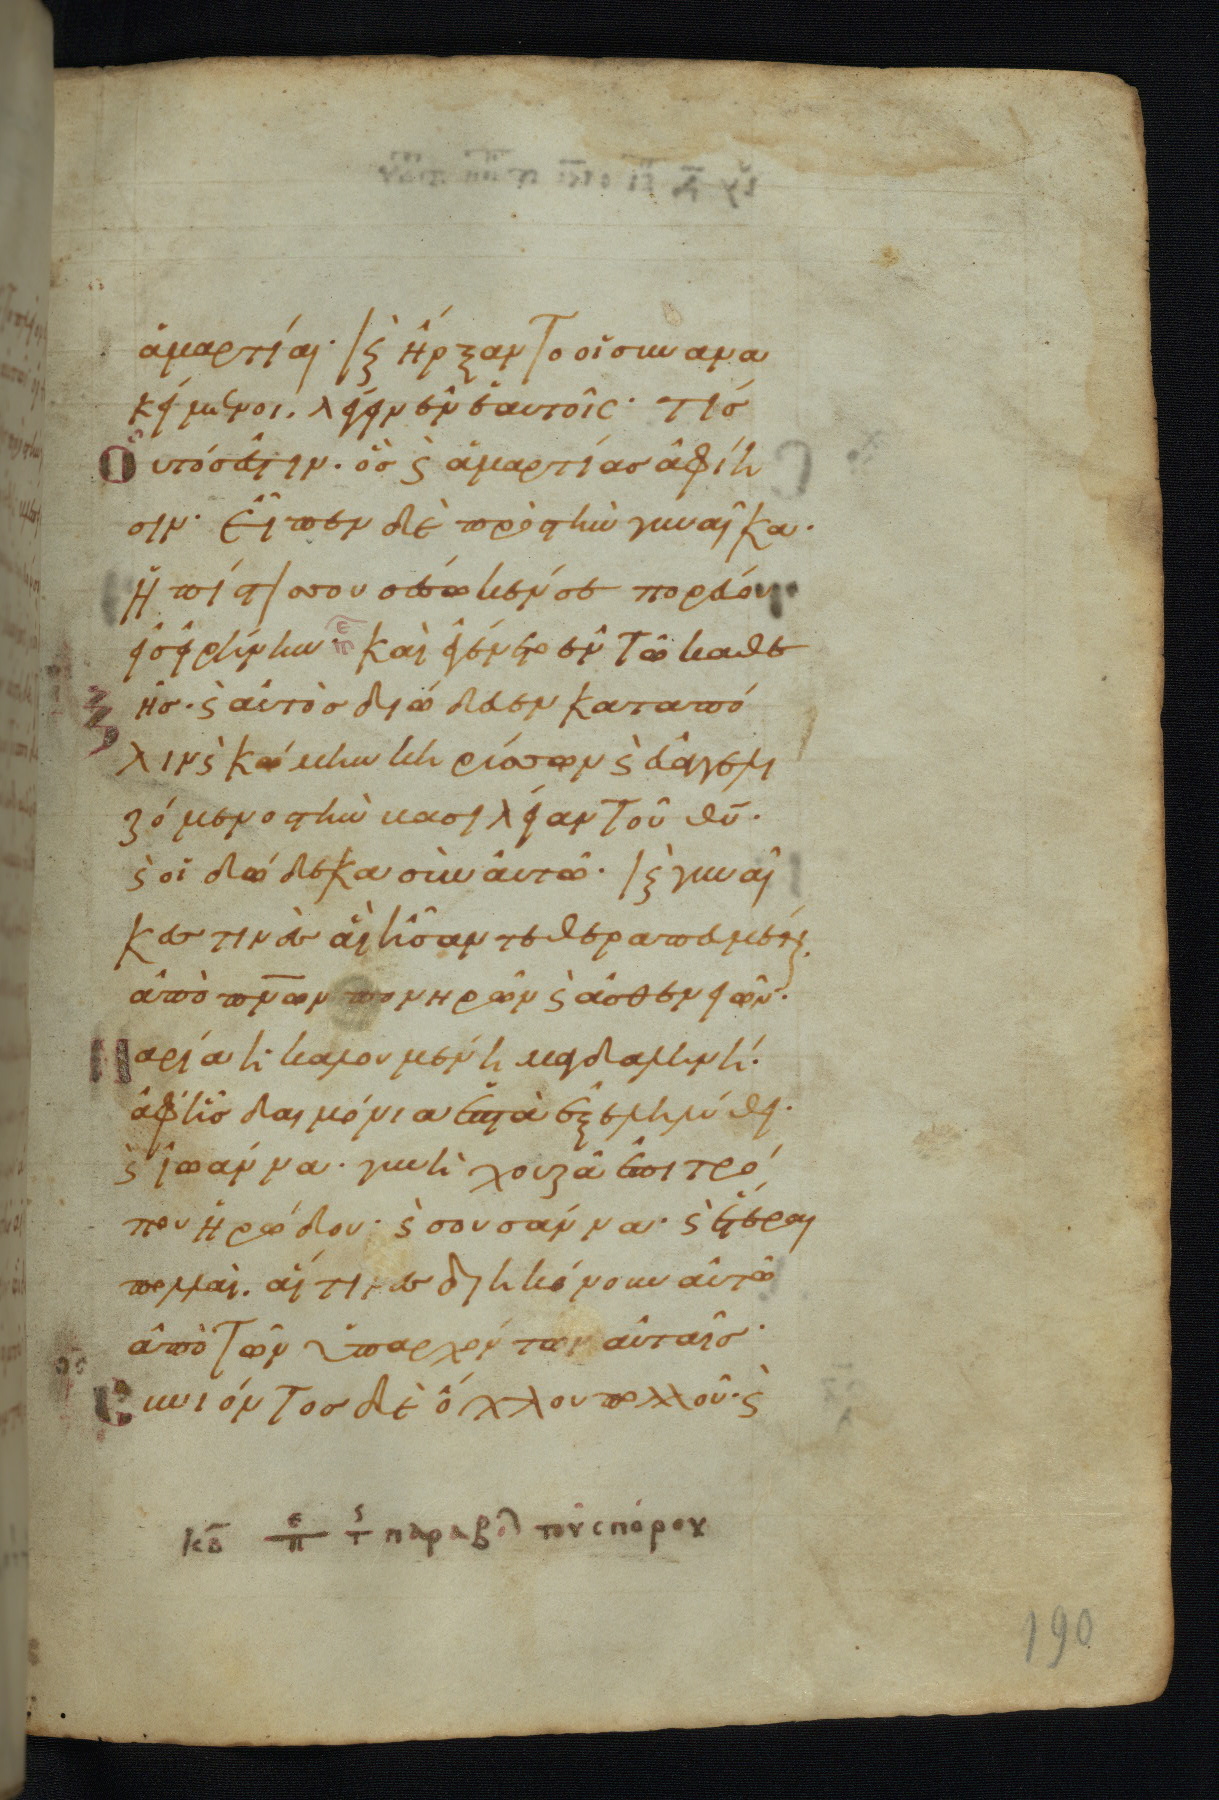 ἁμαρτίαι· ϗ ἤρξαντο οἱ συνανα
κείμενοι. λέγειν ἐν ἑαυτοῖς· τίσ
Οὗτόσ ἐστιν. ὃσ ϗ ἁμαρτίασ ἀφίη
σιν· εἶπεν δὲ πρὸσ τὴν γυναῖκα·
ἡ πίστισ σου σέσωκέν σε πορεύου
εἰσ εἰρήνην· καὶ ἐγένετο ἐν τῶ καθε
ξῆσ· ϗ αὐτὸσ διώδευεν κατὰ πό
λιν ϗ κώμην κηρύσσων ϗ εὐαγγελι
ζόμενοσ τὴν βασιλείαν τοῦ θ̅υ̅·
ϗ οἱ δώδεκα σὺν αὐτῶ· ϗ γυναῖ
κεσ τινὲσ αἳ ἦσαν τεθεραπευμέναι
ἀπὸ π̅ν̅ων πονηρῶν ϗ ἀσθενειῶν·
Μαρία ἡ καλουμένη μαγδαληνή·
ἀφ' ἧσ δαιμόνια ἑπτὰ ἐξεληλύθει·
ϗ ἰωάννα· γυνὴ χουζᾶ ἐπιτρό
που ἡρώδου· ϗ σουσάννα· ϗ ἕτεραι
πολλαὶ. αἵτινεσ διηκόνουν αὐτῶ
ἀπὸ τῶν ὑπαρχόντων αὐταῖσ·
Συνιόντοσ δὲ ὄχλου πολλοῦ· ϗ
κδ τ παραβολ τοῦ σπόρου
190